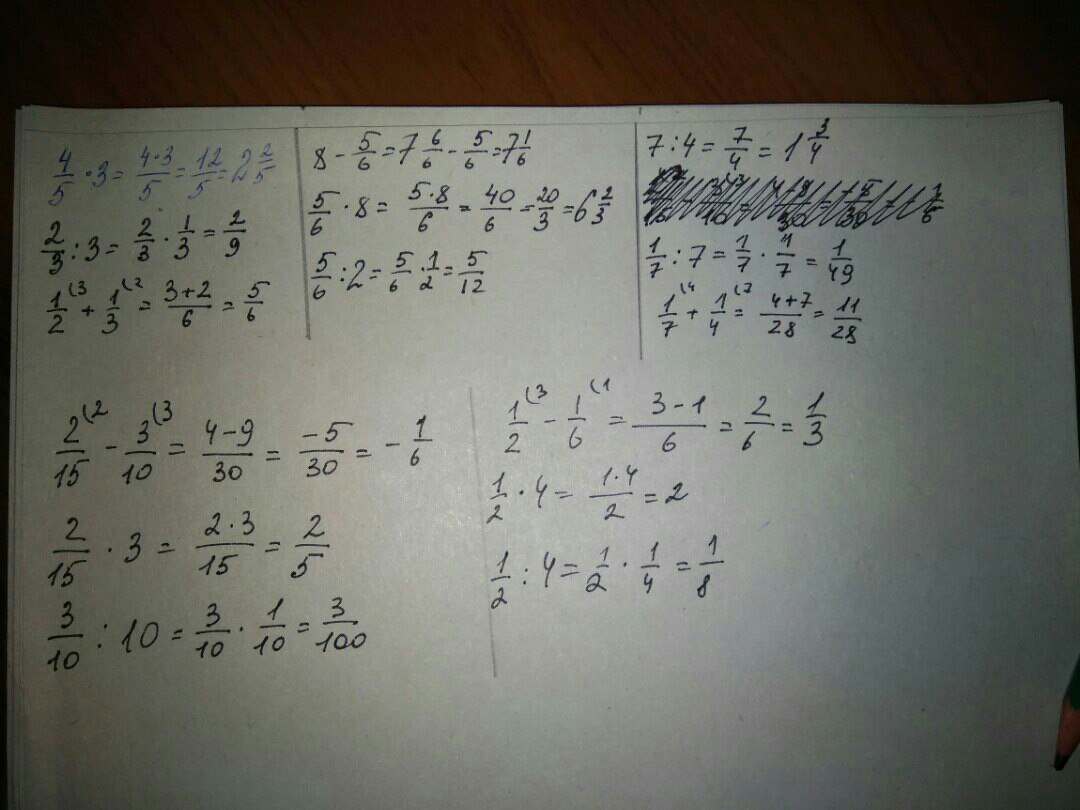 4/5 · 3 = 4·3/5 = 12/5 = 2 2/5
2/3 : 3 = 2/3 · 1/3 = 2/9
1/2 (3 + 1/3 (2 = 3+2/6 = 5/6
8 - 5/6 = 7 6/6 - 5/6 = 7 1/6
5/6 · 8 = 5·8/6 = 40/6 = 20/3 = 6 2/3
5/6 : 2 = 5/6 · 1/2 = 5/12
7 : 4 = 7/4 = 1 3/4
1/7 : 7 = 1/7 · 1/7 = 1/49
1/7 (4 + 1/4 (7 = 4+7/28 = 11/28
2/15 (2 - 3/10 (3 = 4-9/30 = -5/30 = - 1/6
2/15 · 3 = 2·3/15 = 2/5
3/10 : 10 = 3/10 · 1/10 = 3/100
1/2 (3 - 1/6 (1 = 3-1/6 = 2/6 = 1/3
1/2 · 4 = 1·4/2 = 2
1/2 : 4 = 1/2 · 1/4 = 1/8